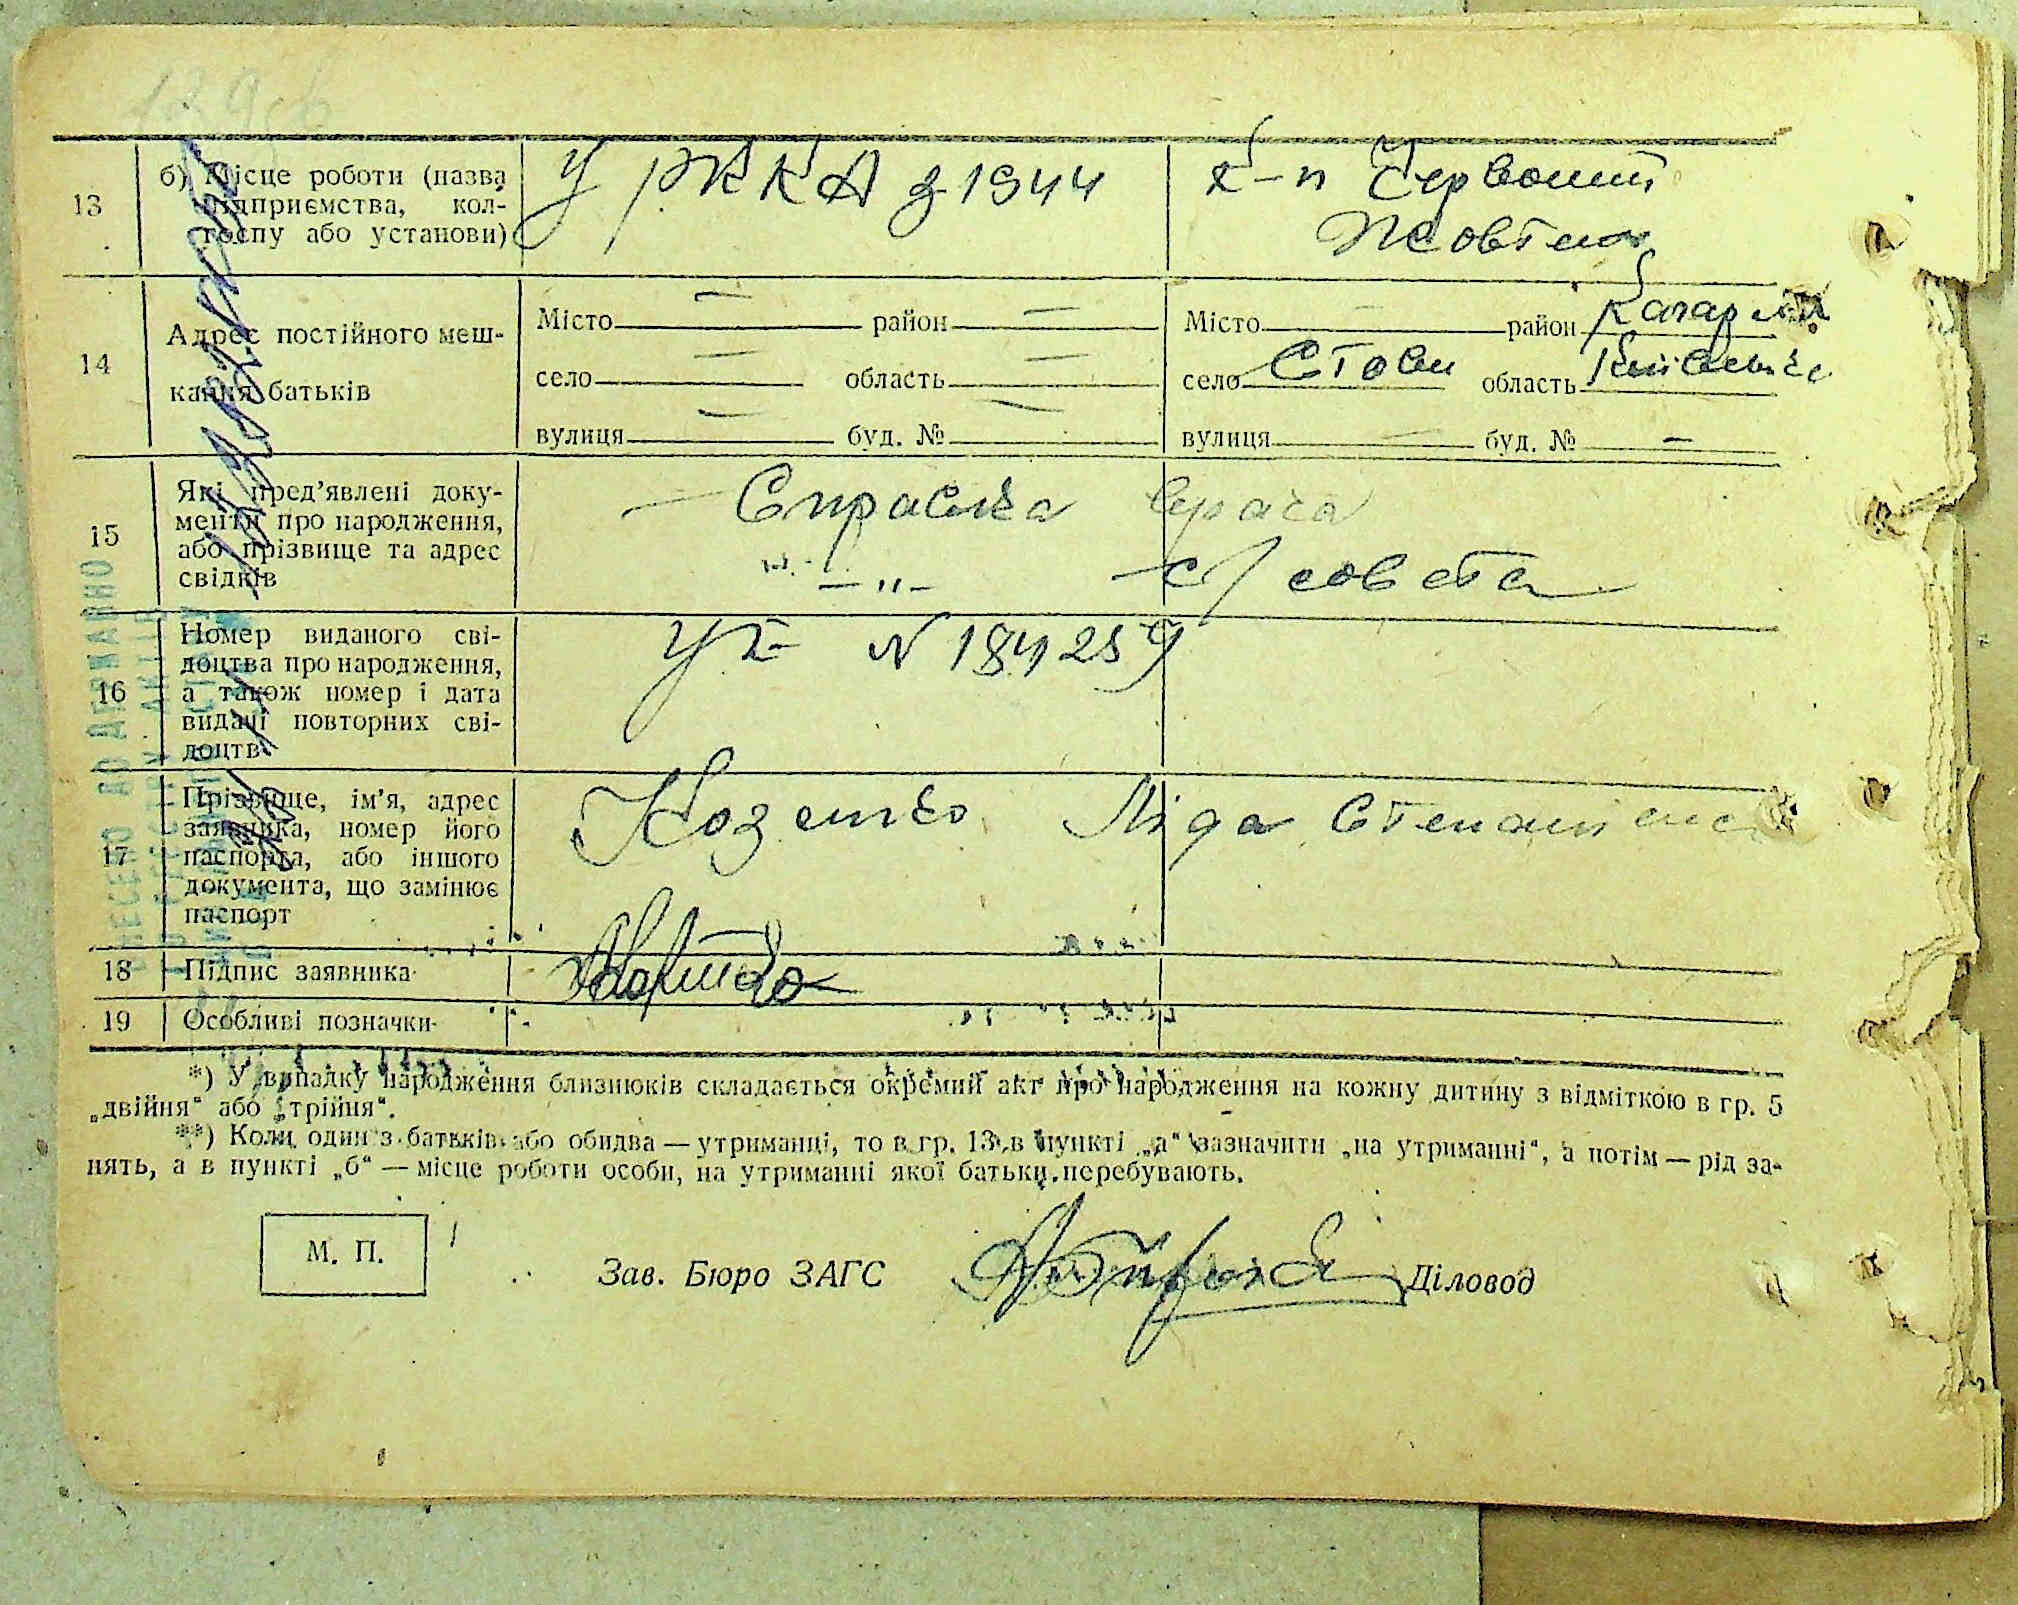 13
б) Місце роботи (назва
підприємства, кол-
госпу або установи)
У РККА з 1944
к-п Червоний
Жовтень
14
Адрес постійного меш-
кання батьків
Місто — район —
село — область —
вулиця — буд. № —
Місто — район Кагарл
село Стави область Київська
вулиця — буд. № —
15
Які пред’явлені доку-
менти про народження,
або прізвище та адрес
свідків
— Справка врача
— „ — с/совета
16
Номер виданого сві-
доцтва про народження,
а також номер і дата
видачі повторних сві-
доцтв
УІ- N 184259
17
Прізвище, ім’я, адрес
заявника, номер його
паспорта, або іншого
документа, що замінює
паспорт
Козенко Ліда Степанівна
18
Підпис заявника
19
Особливі позначки
*) У випадку народження близнюків складається окремий акт про народження на кожну дитину з відміткою в гр. 5
„двійня“ або „трійня“.
**) Коли один з батьків або обидва — утриманці, то в гр. 13 в пункті „а“ зазначити „на утриманні“, а потім — рід за-
нять, а в пункті „б“ — місце роботи особи, на утриманні якої батьки перебувають.
М. П.
Зав. Бюро ЗАГС
Діловод